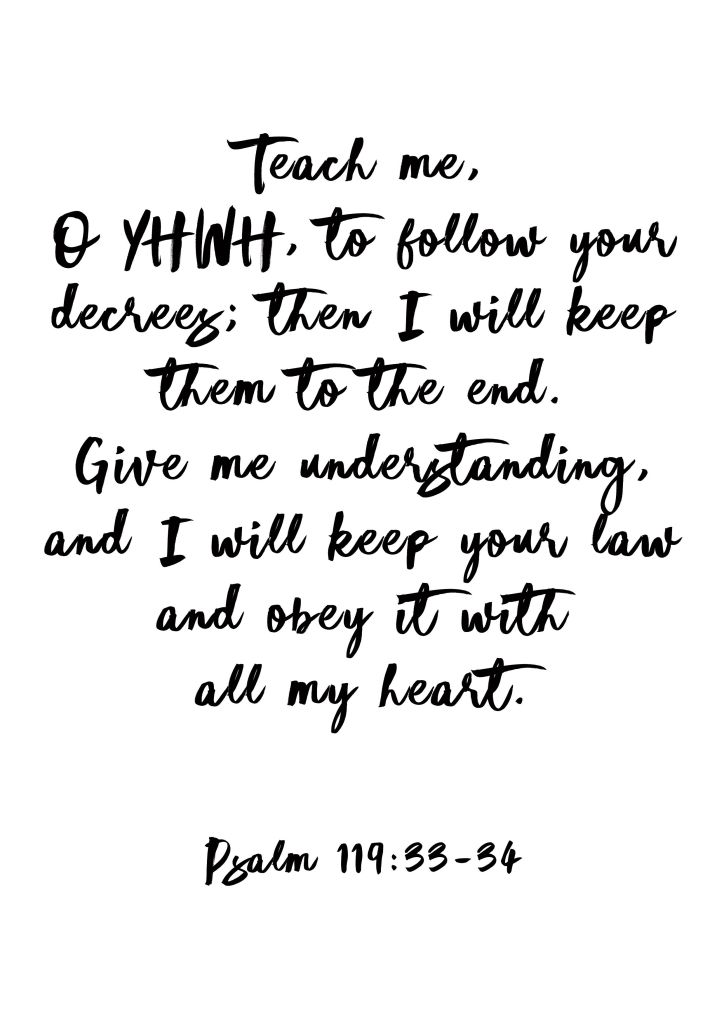 Teach me,
O YHWH, to follow your
decrees; then I will keep
them to the end.
Give me understanding,
and I will keep your law
and obey it with
all my heart.
Psalm 119:33-34